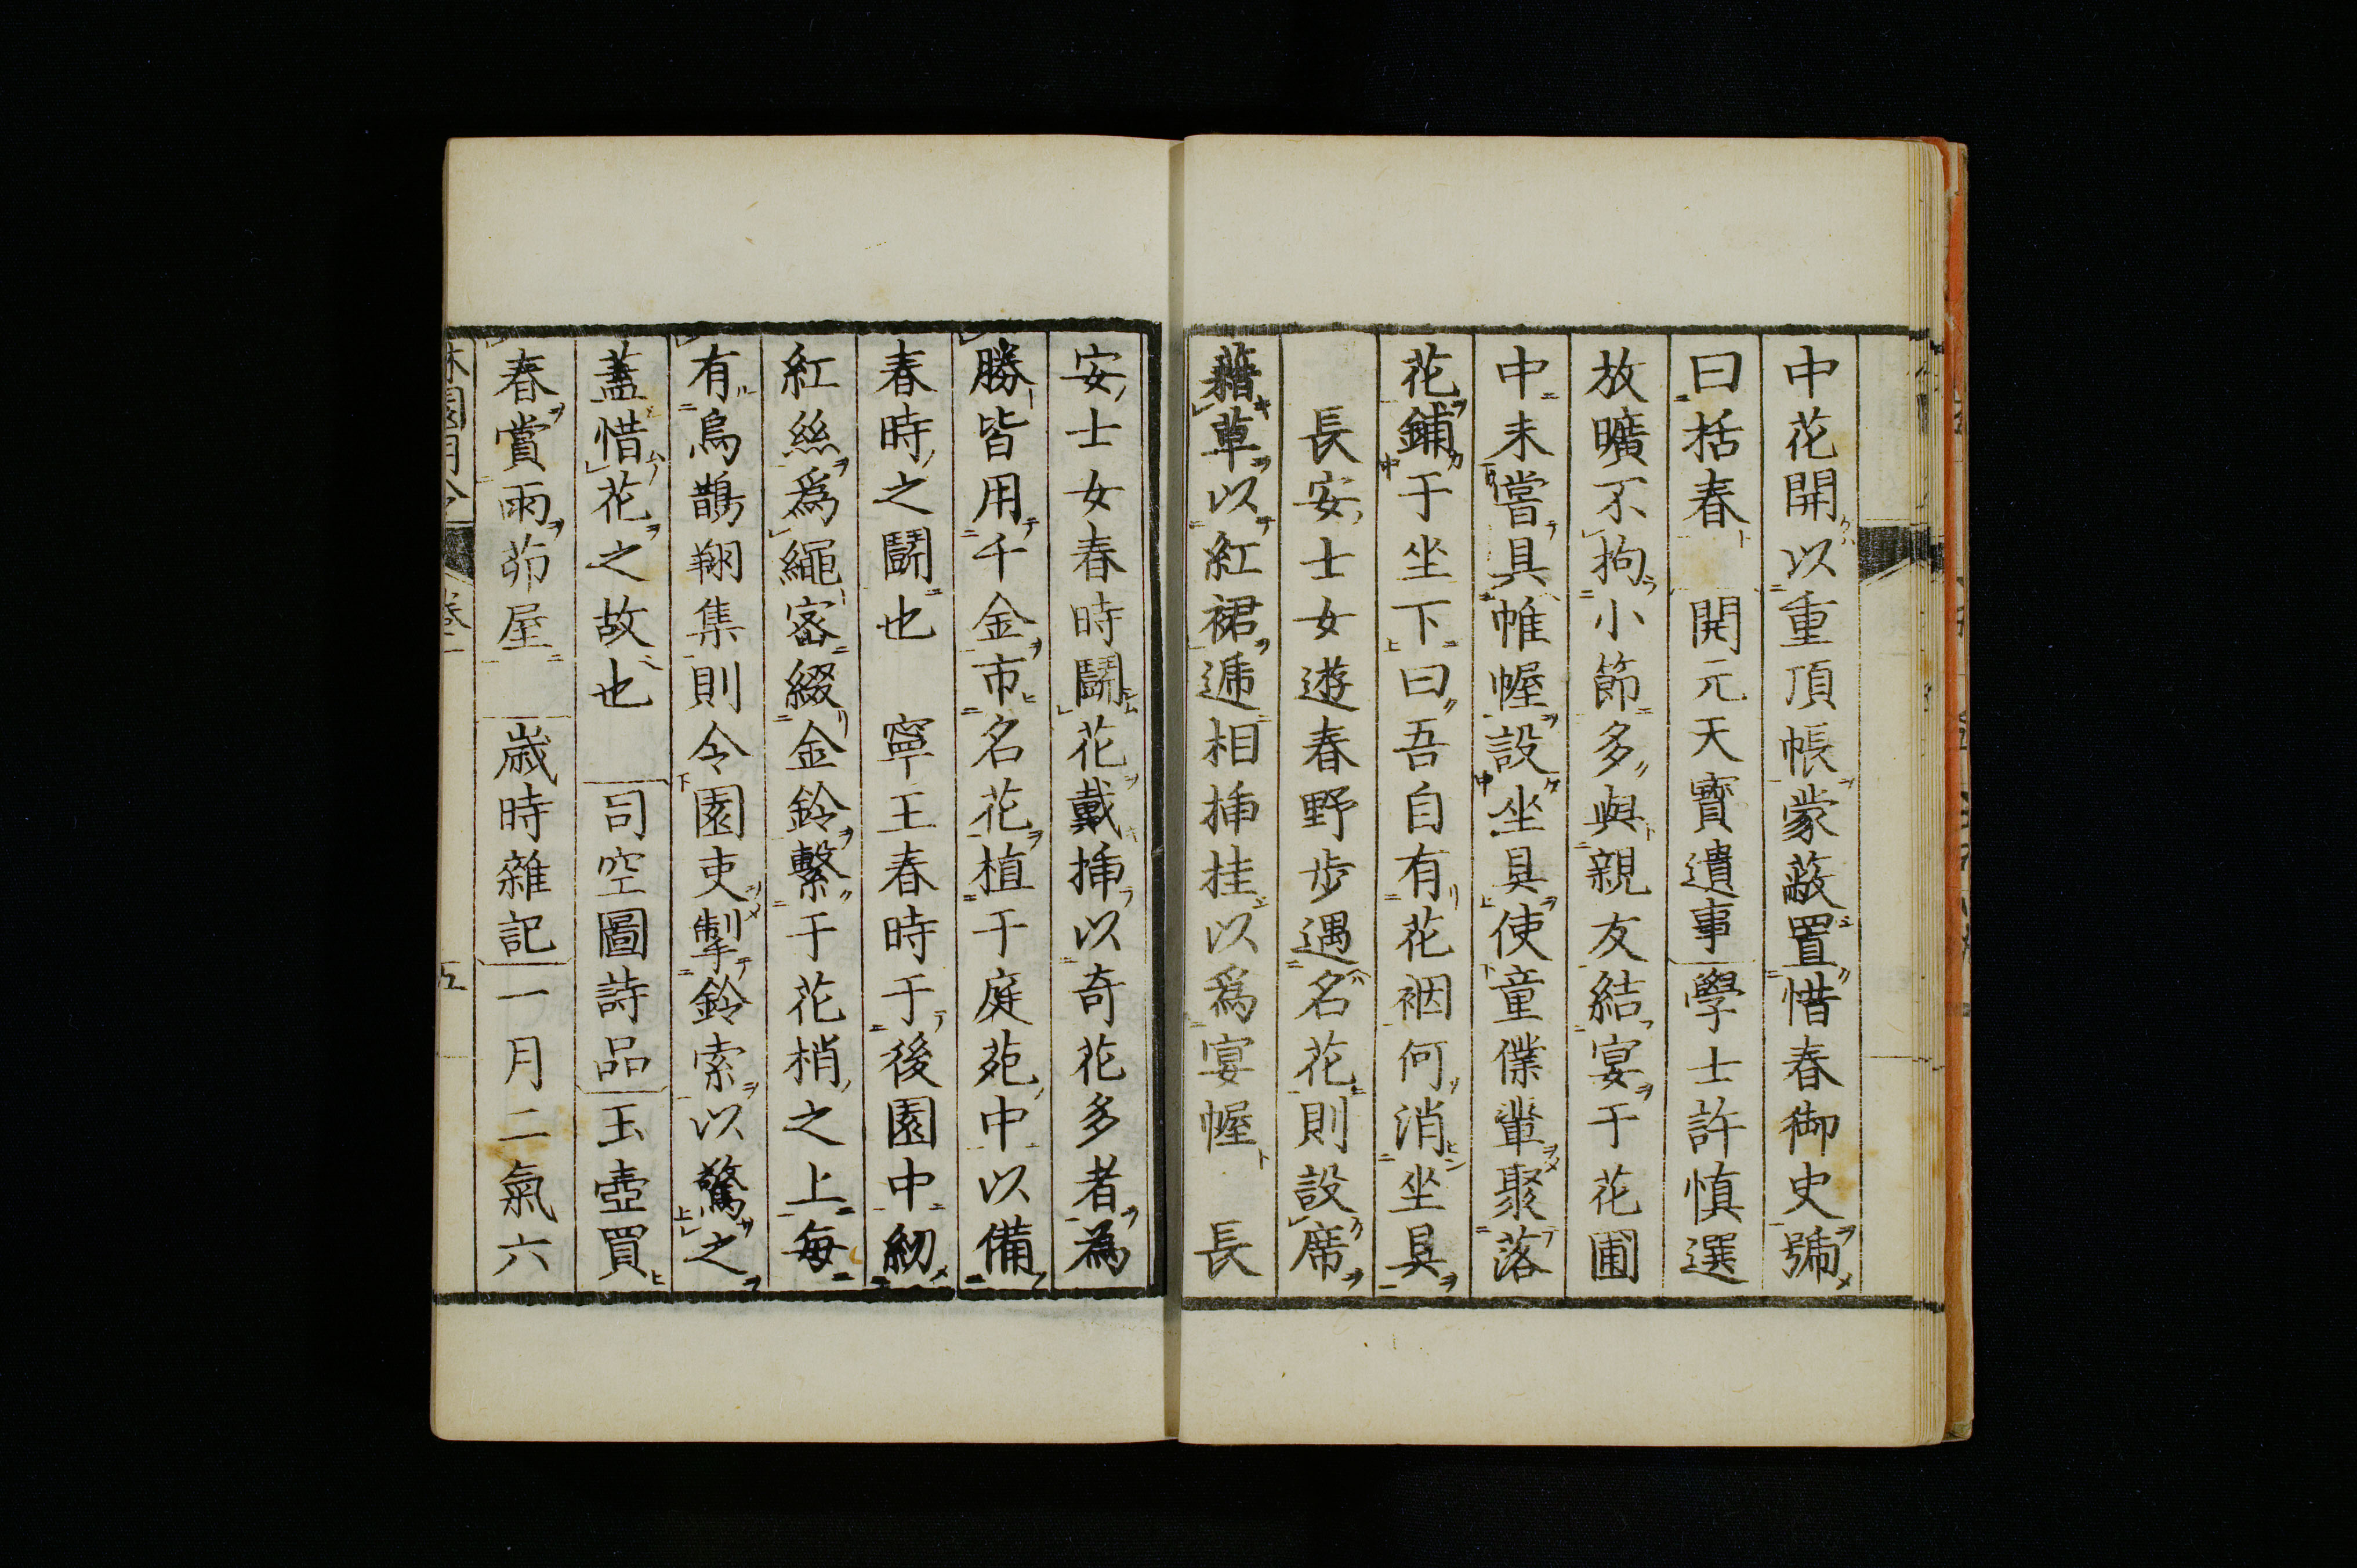 中花開以重頂帳蒙蔽置惜春御史號
曰括春 開元天寶遺事學士許慎選
放曠不拘小節多與親友結宴于花圃
中未嘗具帷幄設坐具使童僕輩聚落
花鋪于坐下曰吾自有花裀何消坐具
長安士女遊春野步遇名花則設席
藉草以紅裙遞相插挂以爲宴幄 長
安士女春時鬪花戴插以奇花多者為
勝皆用千金市名花植于庭苑中以備
春時之鬪也 寧王春時于後園中紉
紅絲爲繩密綴金鈴繫于花梢之上每
有烏鵲翔集則令園吏掣鈴索以驚之
蓋惜花之故也 司空圖詩品玉壺買
春賞雨茆屋 歲時雜記一月二氣六